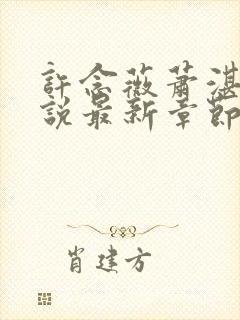 許念薇蕭湛
說最新章節
肖建方